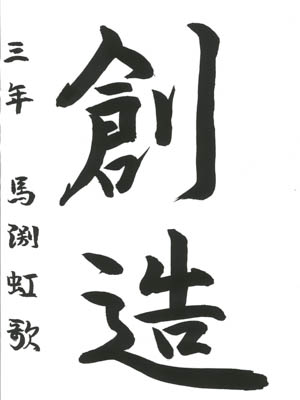 創造
三年 馬渕虹歌